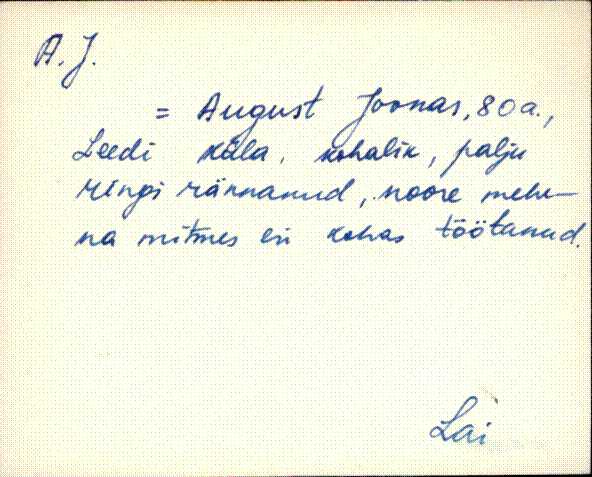 A. J.
= August Joonas, 80 a.,
Leedi küla, kohalik, palju
ringi rännanud, noore mehe-
na mitmes eri kohas töötanud.
Lai